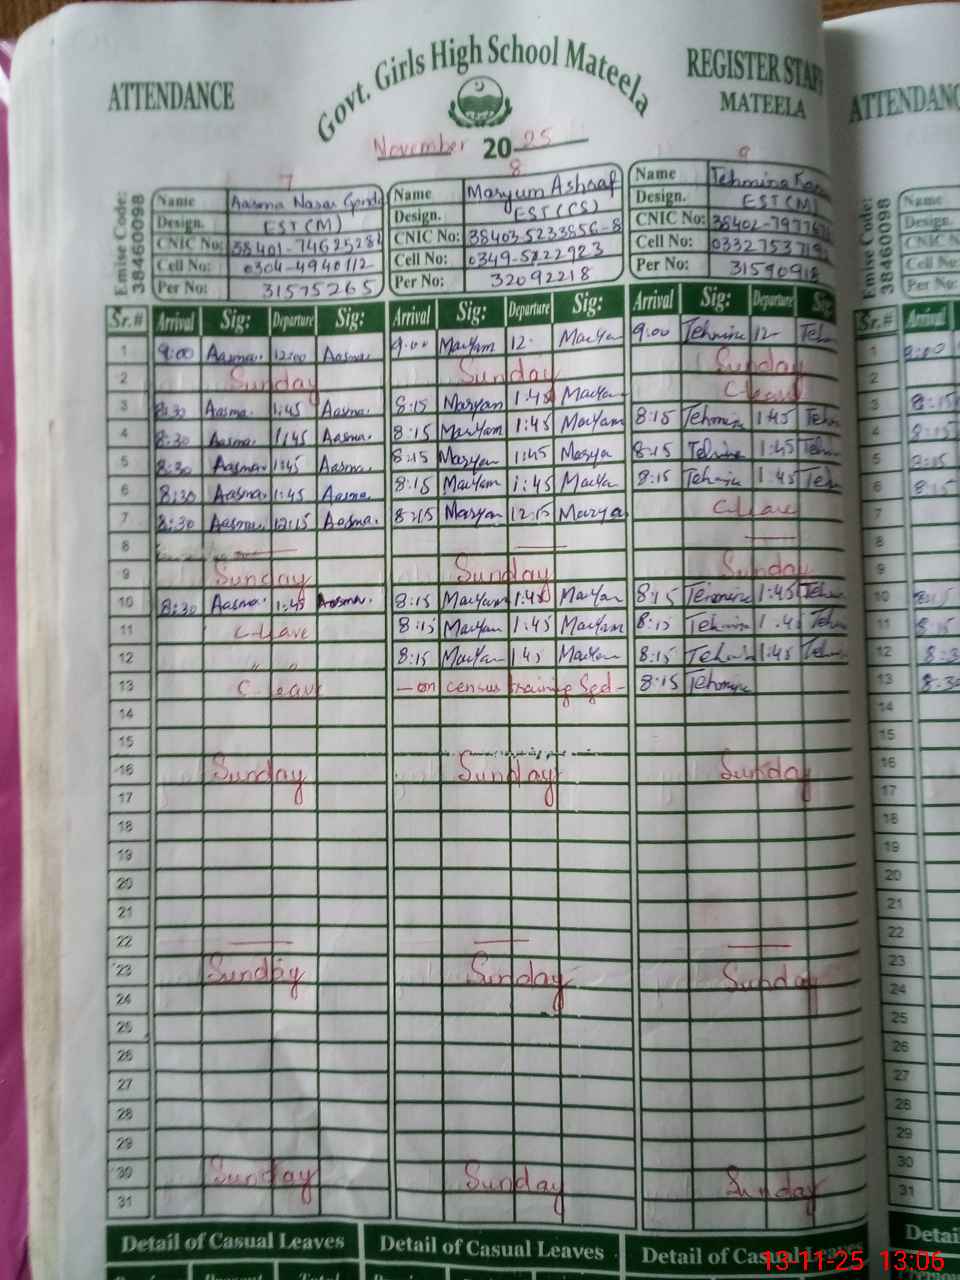 ATTENDANCE
Govt. Girls High School Mateela
REGISTER STAFF
MATEELA
ATTENDANC
November 2025
7 8 9
Emise Code: 38460098
Name Aasma Nasar
Design. EST(M)
CNIC No:
Cell No: 0304-4940112
Per No: 31575265
Name Maryum Ashraf
Design. EST(CS)
CNIC No: 38403-5233856-8
Cell No: 0349-5822923
Per No: 32092218
Name Tehmina
Design. EST(M)
CNIC No:
Cell No:
Per No: 31590918
Sr.# Arrival Sig: Departure Sig: Arrival Sig: Departure Sig: Arrival Sig: Departure Sig
1 9:00 Aasma. 12:00 Aasma. 9:00 Maryam 12- Maryam 9:00 Tehmina 12- Teh
2 Sunday Sunday Sunday
3 8:30 Aasma. 1:45 Aasma. 8:15 Maryam 1:45 Maryam C leave
4 8:30 Aasma. 1:45 Aasma. 8:15 Maryam 1:45 Maryam 8:15 Tehmina 1:45 Teh
5 8:30 Aasma. 1:45 Aasma. 8:15 Maryam 1:45 Marya 8:15 Tehmina 1:45 Teh
6 8:30 Aasma. 1:45 Aasma 8:15 Maryam 1:45 Marya 8:15 Tehmina 1:45 Teh
7 8:30 Aasma. 12:15 Aasma. 8:15 Maryam 12:15 Marya C leave
8
9 Sunday Sunday Sunday
10 8:30 Aasma. 1:45 Aasma. 8:15 Maryam 1:45 Maryam 8:15 Tehmina 1:45 Teh
11 C leave 8:15 Maryam 1:45 Maryam 8:15 Tehmina 1:45 Teh
12 " " 8:15 Maryam 1:45 Maryam 8:15 Tehmina 1:45 Teh
13 C leave -on census training Sgd- 8:15 Tehmina
14
15
16 Sunday Sunday Sunday
17
18
19
20
21
22
23 Sunday Sunday Sunday
24
25
26
27
28
29
30 Sunday Sunday Sunday
31
Detail of Casual Leaves Detail of Casual Leaves Detail of Casual Leaves
Emise Code: 38460098
Name
Design.
CNIC No:
Cell No:
Per No:
Sr.# Arrival
1 9:00
2
3 8:15
4 8:15
5 8:15
6 8:15
7
8
9
10 8:15
11 8:15
12 8:3
13 8:30
14
15
16
17
18
19
20
21
22
23
24
25
26
27
28
29
30
31
Detai
13-11-25 13:06